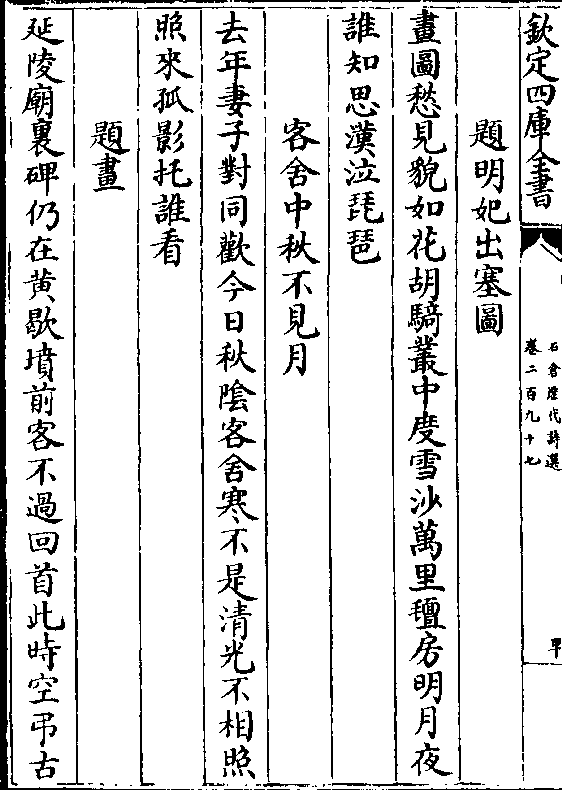 欽定四庫全書
石倉歷代詩選
卷二百九十七
題明妃出塞圖
畫圖愁見貌如花胡騎叢中度雪沙萬里氊房明月夜
誰知思漢泣琵琶
客舍中秋不見月
去年妻子對同歡今日秋陰客舍寒不是清光不相照
照來孤影托誰看
題畫
延陵廟裏碑仍在黄歇墳前客不過回首此時空弔古